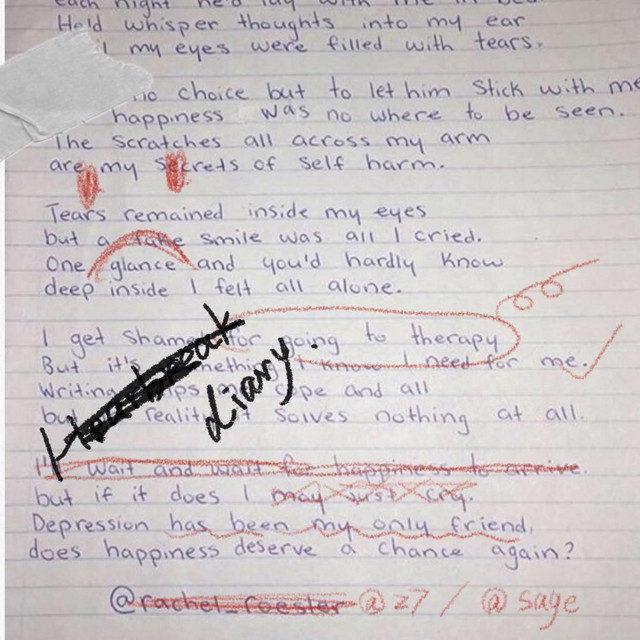 each night he'd lay with me in bed
He'd whisper thoughts into my ear
my eyes were filled with tears.
no choice but to let him stick with me
happiness was no where to be seen.
The scratches all across my arm
are my secrets of self harm.
Tears remained inside my eyes
but a fake smile was all I cried.
One glance and you'd hardly know
deep inside I felt all alone.
I get shamed for going to therapy
But it's something I know I need for me.
Writing helps cope and all
but reality it solves nothing at all.
Heartbreak
diary.
I'll wait and wait for happiness to arrive.
but if it does I may just cry.
Depression has been my only friend,
does happiness deserve a chance again?
@rachel_roester @z7 / @sage